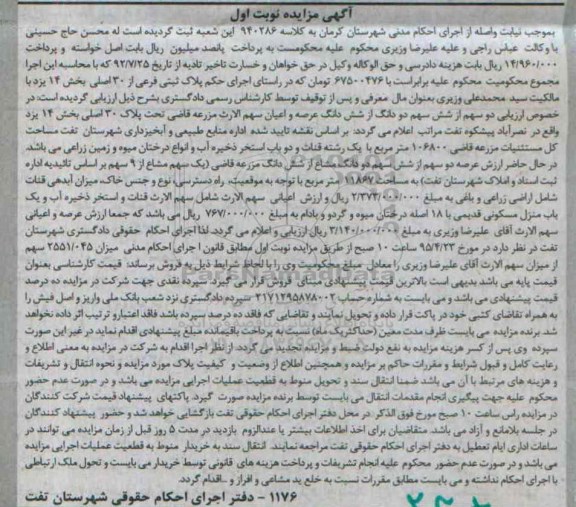 آگهی مزایده نوبت اول
بموجب نیابت واصله از اجرای احکام مدنی شهرستان کرمان به کلاسه ۹۴۰۲۸۶ این شعبه ثبت گردیده است له محسن حاج حسینی
با وکالت عباس راجی و علیه علیرضا وزیری محکوم علیه محکومست به پرداخت پانصد میلیون ریال بابت اصل خواسته و پرداخت
۱۴/۹۶۰/۰۰۰ ریال بابت هزینه دادرسی و حق الوکاله وکیل در حق خواهان و خسارت تاخیر تادیه از تاریخ ۹۲/۷/۲۵ که با محاسبه این اجرا
مجموع محکومیت محکوم علیه برابراست با ۶۷۵۰۰۴۷۶ تومان که در راستای اجرای حکم پلاک ثبتی فرعی از ۳۰ اصلی بخش ۱۴ یزد با
مالکیت سید محمدعلی وزیری بعنوان مال معرفی و پس از توقیف توسط کارشناس رسمی دادگستری بشرح ذیل ارزیابی گردیده است: در
خصوص ارزیابی دو سهم از شش سهم دو دانگ از شش دانگ عرصه و اعیان سهم الارث مزرعه قاضی تحت پلاک ۳۰ اصلی بخش ۱۴ یزد
واقع در نصرآباد پیشکوه تفت مراتب اعلام می گردد: بر اساس نقشه تایید شده اداره منابع طبیعی و آبخیزداری شهرستان تفت مساحت
کل مستثنیات مزرعه قاضی ۱۰۶۸۰۰ متر مربع با یک رشته قنات و دو باب استخر ذخیره آب و انواع درختان میوه و زمین زراعی می باشد.
در حال حاضر ارزش عرصه دو سهم از شش سهم دو دانگ مشاع از شش دانگ مزرعه قاضی (یک سهم مشاع از ۹ سهم بر اساس تائیدیه اداره
ثبت اسناد و املاک شهرستان تفت) به مساحت ۱۱۸۶۷ متر مربع با توجه به موقعیت، راه دسترسی، نوع و جنس خاک، میزان آبدهی قنات
شامل اراضی زراعی و باغی به مبلغ ۲/۳۷۳/۰۰۰/۰۰۰ ریال و ارزش اعیانی سهم الارث شامل سهم الارث قنات و استخر ذخیره آب و یک
باب منزل مسکونی قدیمی با ۱۸ اصله درختان میوه و گردو و بادام به مبلغ ۷۶۷/۰۰۰/۰۰۰ ریال می باشد که جمعا ارزش عرصه و اعیانی
سهم الارث آقای علیرضا وزیری به مبلغ ۳/۱۴۰/۰۰۰/۰۰۰ ریال ارزیابی و اعلام می گردد. لذا اجرای احکام حقوقی دادگستری شهرستان
تفت در نظر دارد در مورخ ۹۵/۴/۲۳ ساعت ۱۰ صبح از طریق مزایده نوبت اول مطابق قانون اجرای احکام مدنی میزان ۲۵۵۱/۰۴۵ سهم
از میزان سهم الارث آقای علیرضا وزیری را معادل مبلغ محکومیت وی را با لحاظ شرایط ذیل به فروش برساند: قیمت کارشناسی بعنوان
قیمت پایه می باشد بدیهی است بالاترین قیمت پیشنهادی مبنای فروش قرار می گیرد. سپرده نقدی جهت شرکت در مزایده ده درصد
قیمت پیشنهادی می باشد و می بایست به شماره حساب ۲۱۷۱۲۹۵۸۷۸۰۰۲ سپرده دادگستری نزد شعب بانک ملی واریز و اصل فیش را
به همراه تقاضای کتبی خود در پاکت قرار داده و تحویل نمایند و تقاضایی که فاقد ده درصد سپرده باشد فاقد اعتبار و ترتیب اثر داده نخواهد
شد. برنده مزایده می بایست ظرف مدت معین (حداکثر یک ماه) نسبت به پرداخت باقیمانده مبلغ پیشنهادی اقدام نماید در غیر این صورت
سپرده وی پس از کسر هزینه مزایده به نفع دولت ضبط و مزایده تجدید می گردد. از نظر اجرا اقدام به شرکت در مزایده به معنی اطلاع و
رعایت کامل و قبول شرایط و مقررات حاکم بر مزایده و همچنین اطلاع از وضعیت و کیفیت پلاک مورد مزایده و نحوه انتقال و تشریفات
و هزینه های مرتبط با آن می باشد ضمنا انتقال سند و تحویل منوط به قطعیت عملیات اجرایی مزایده می باشد و در صورت عدم حضور
محکوم علیه جهت پیگیری انجام مقدمات انتقال می بایست توسط برنده مزایده صورت گیرد. پاکتهای پیشنهاد قیمت شرکت کنندگان
در مزایده راس ساعت ۱۰ صبح مورخ فوق الذکر در محل دفتر اجرای احکام حقوقی تفت بازگشایی خواهد شد و حضور پیشنهاد کنندگان
در جلسه بلامانع و آزاد می باشد. متقاضیان برای اخذ اطلاعات بیشتر یا عندالزوم بازدید در مدت ۵ روز قبل از زمان مزایده می توانند در
ساعات اداری ایام تعطیل به دفتر اجرای احکام حقوقی تفت مراجعه نمایند. انتقال سند به خریدار منوط به قطعیت عملیات اجرایی مزایده
می باشد و در صورت عدم حضور محکوم علیه انجام تشریفات و پرداخت هزینه های قانونی توسط خریدار می بایست و تحول ملک ارتباطی
با اجرای احکام نداشته و می بایست مطابق مقررات نسبت به خلع ید مشاعی و افراز و ...اقدام گردد.
۱۱۷۶ - دفتر اجرای احکام حقوقی شهرستان تفت